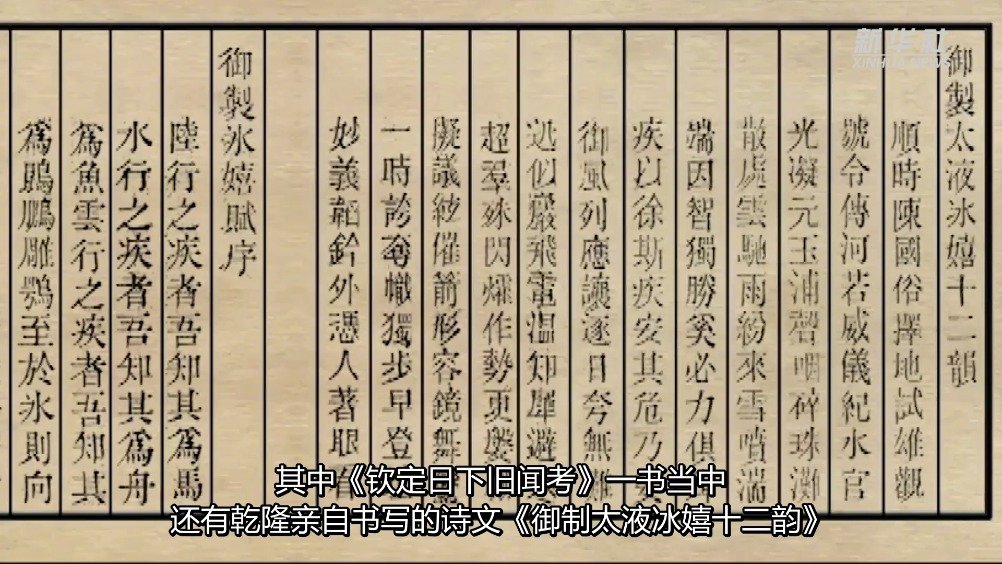 新华社
XINHUA NEWS
御製太液冰嬉十二韻
順時陳國俗擇地試雄觀
號令傳河若威儀紀水官
光凝元玉浦磬咽碎珠灘
散處雲馳雨紛來雪噴湍
端因智獨勝奚必力俱
疾以徐斯疾安其危乃
御風列應讓逐日夸無難
迅似巖飛電温知犀避
超羣殊閃爚作勢更
擬議絃催箭形容鏡舞
一時誇奪幟獨步早登
妙義韜鈐外憑人著眼看
御製冰嬉賦序
陸行之疾者吾知其為馬
水行之疾者吾知其為舟
為魚雲行之疾者吾知其
為鵬雕鶚至於冰則向
其中《钦定日下旧闻考》一书当中
还有乾隆亲自书写的诗文《御制太液冰嬉十二韵》